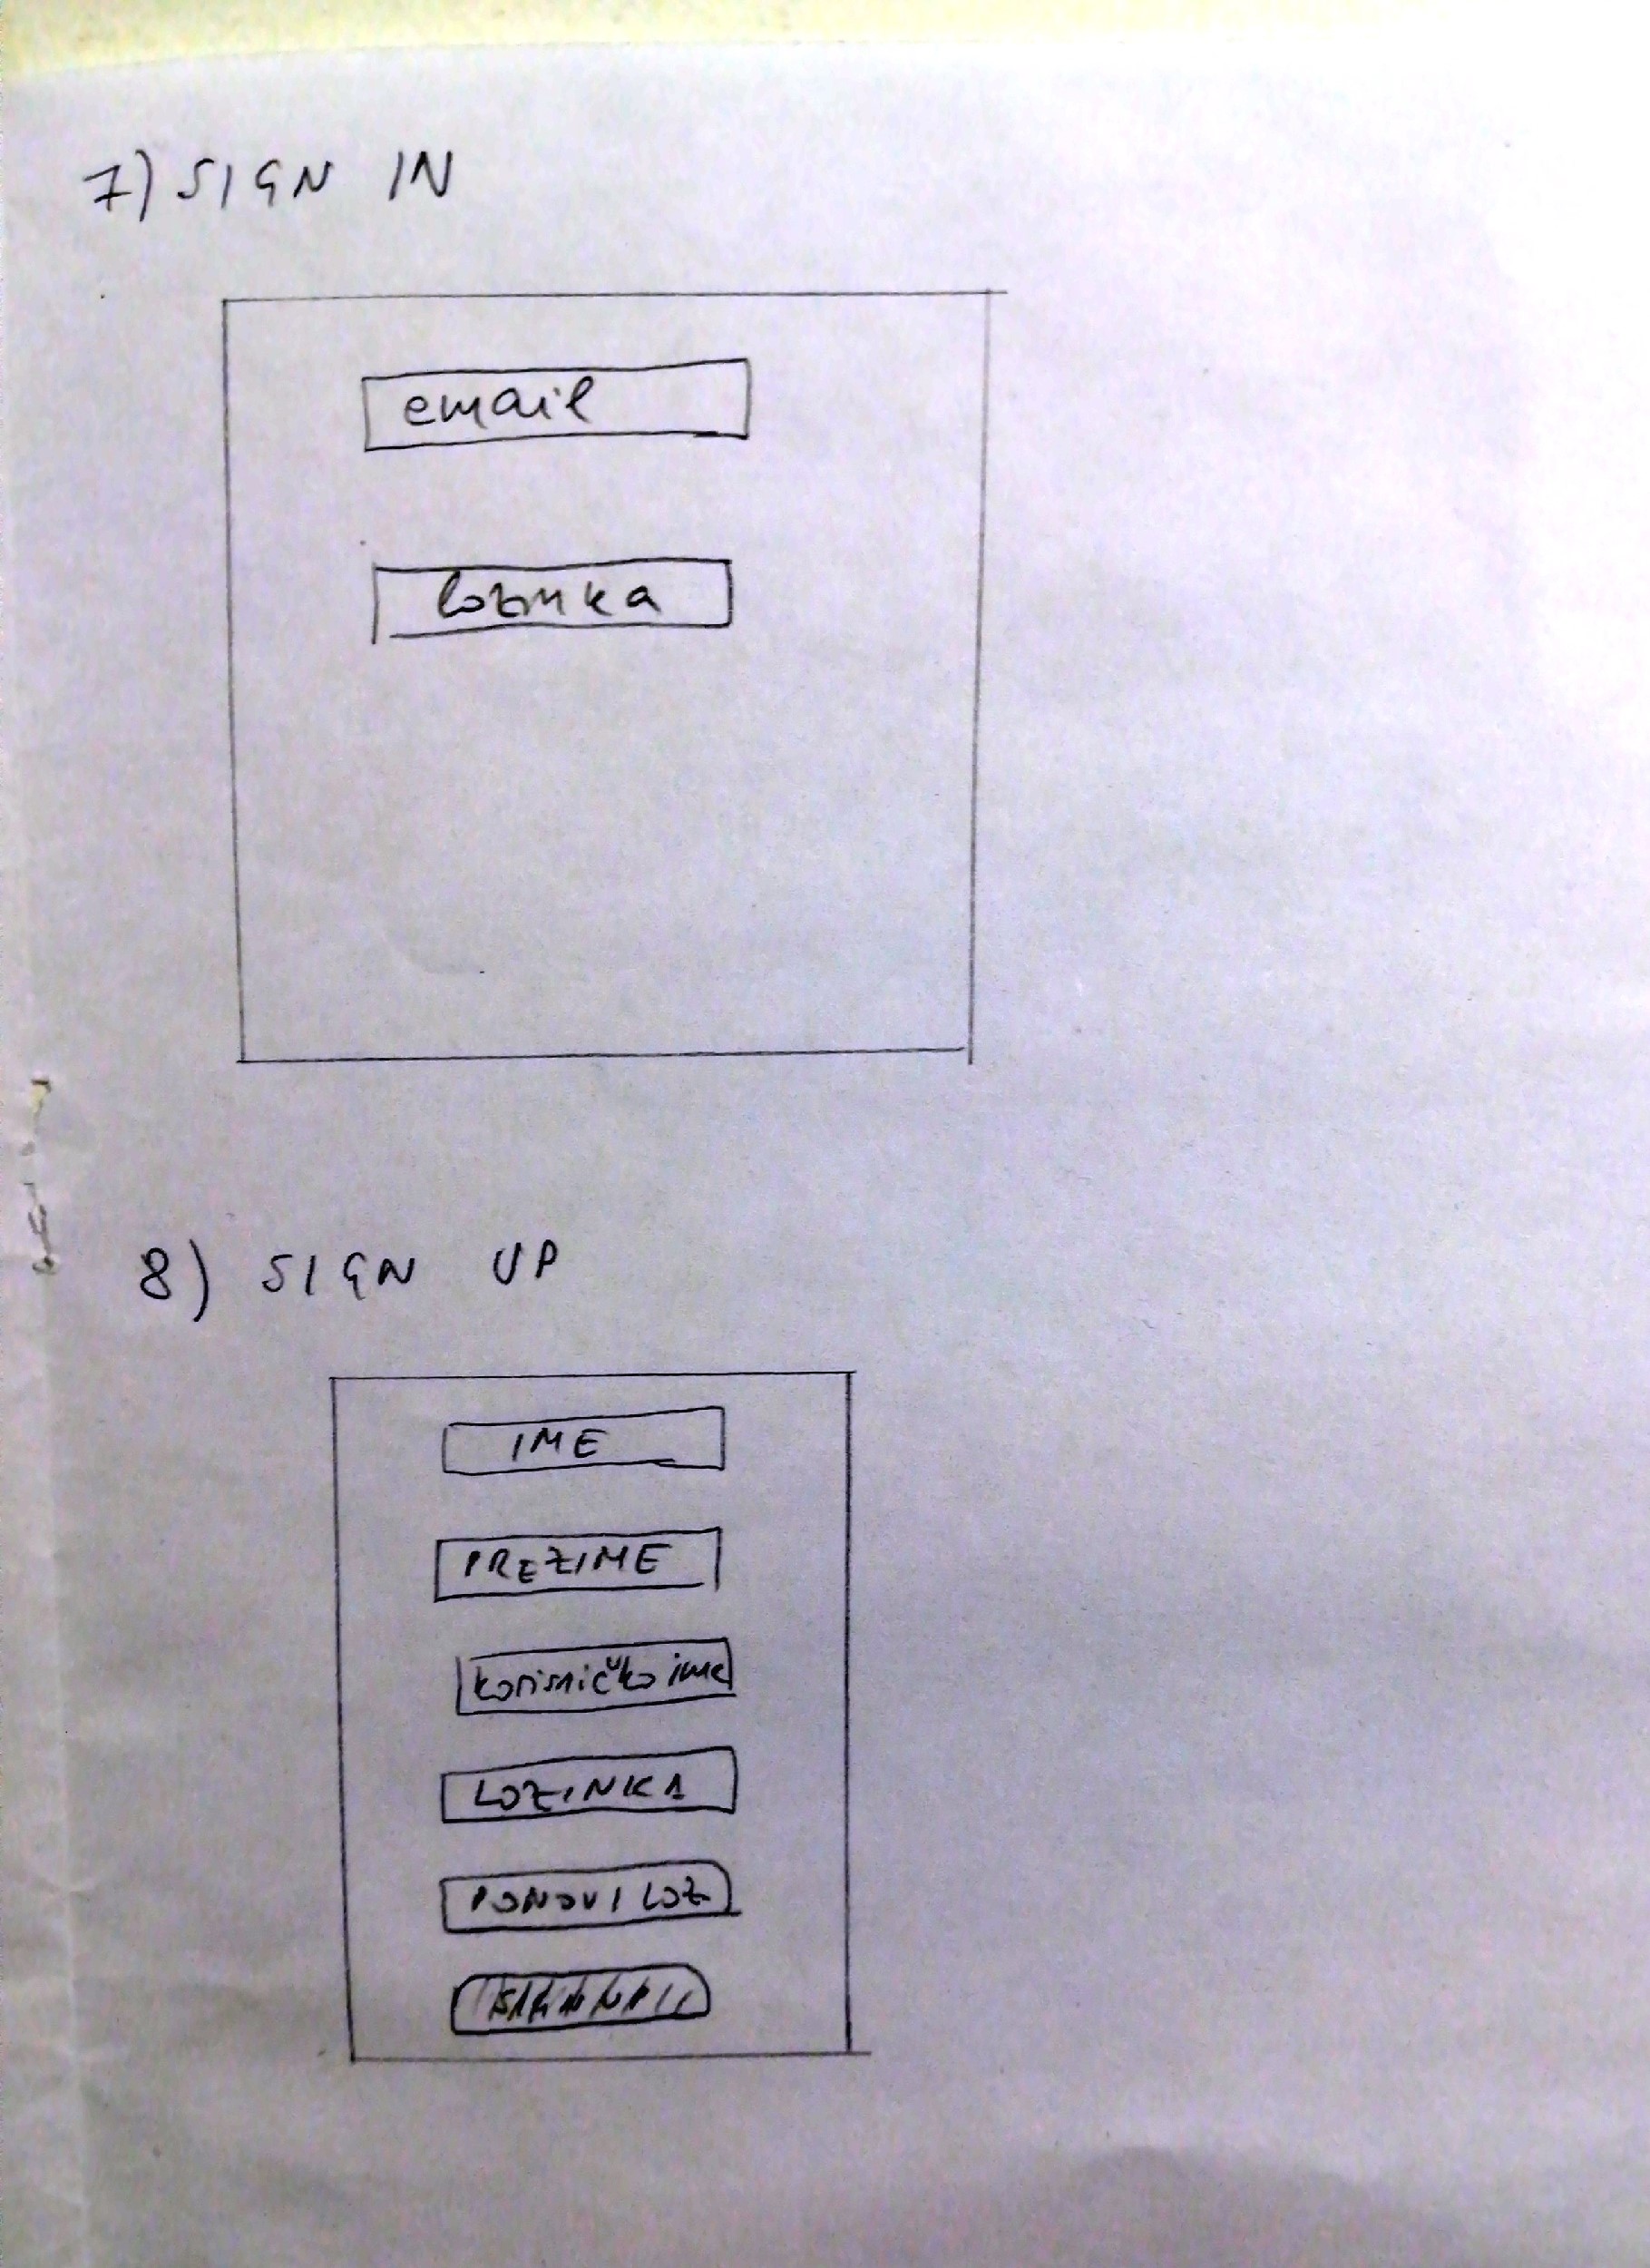 7) SIGN IN
email
lozinka
8) SIGN UP
IME
PREZIME
korisničko ime
LOZINKA
PONOVI LOZ